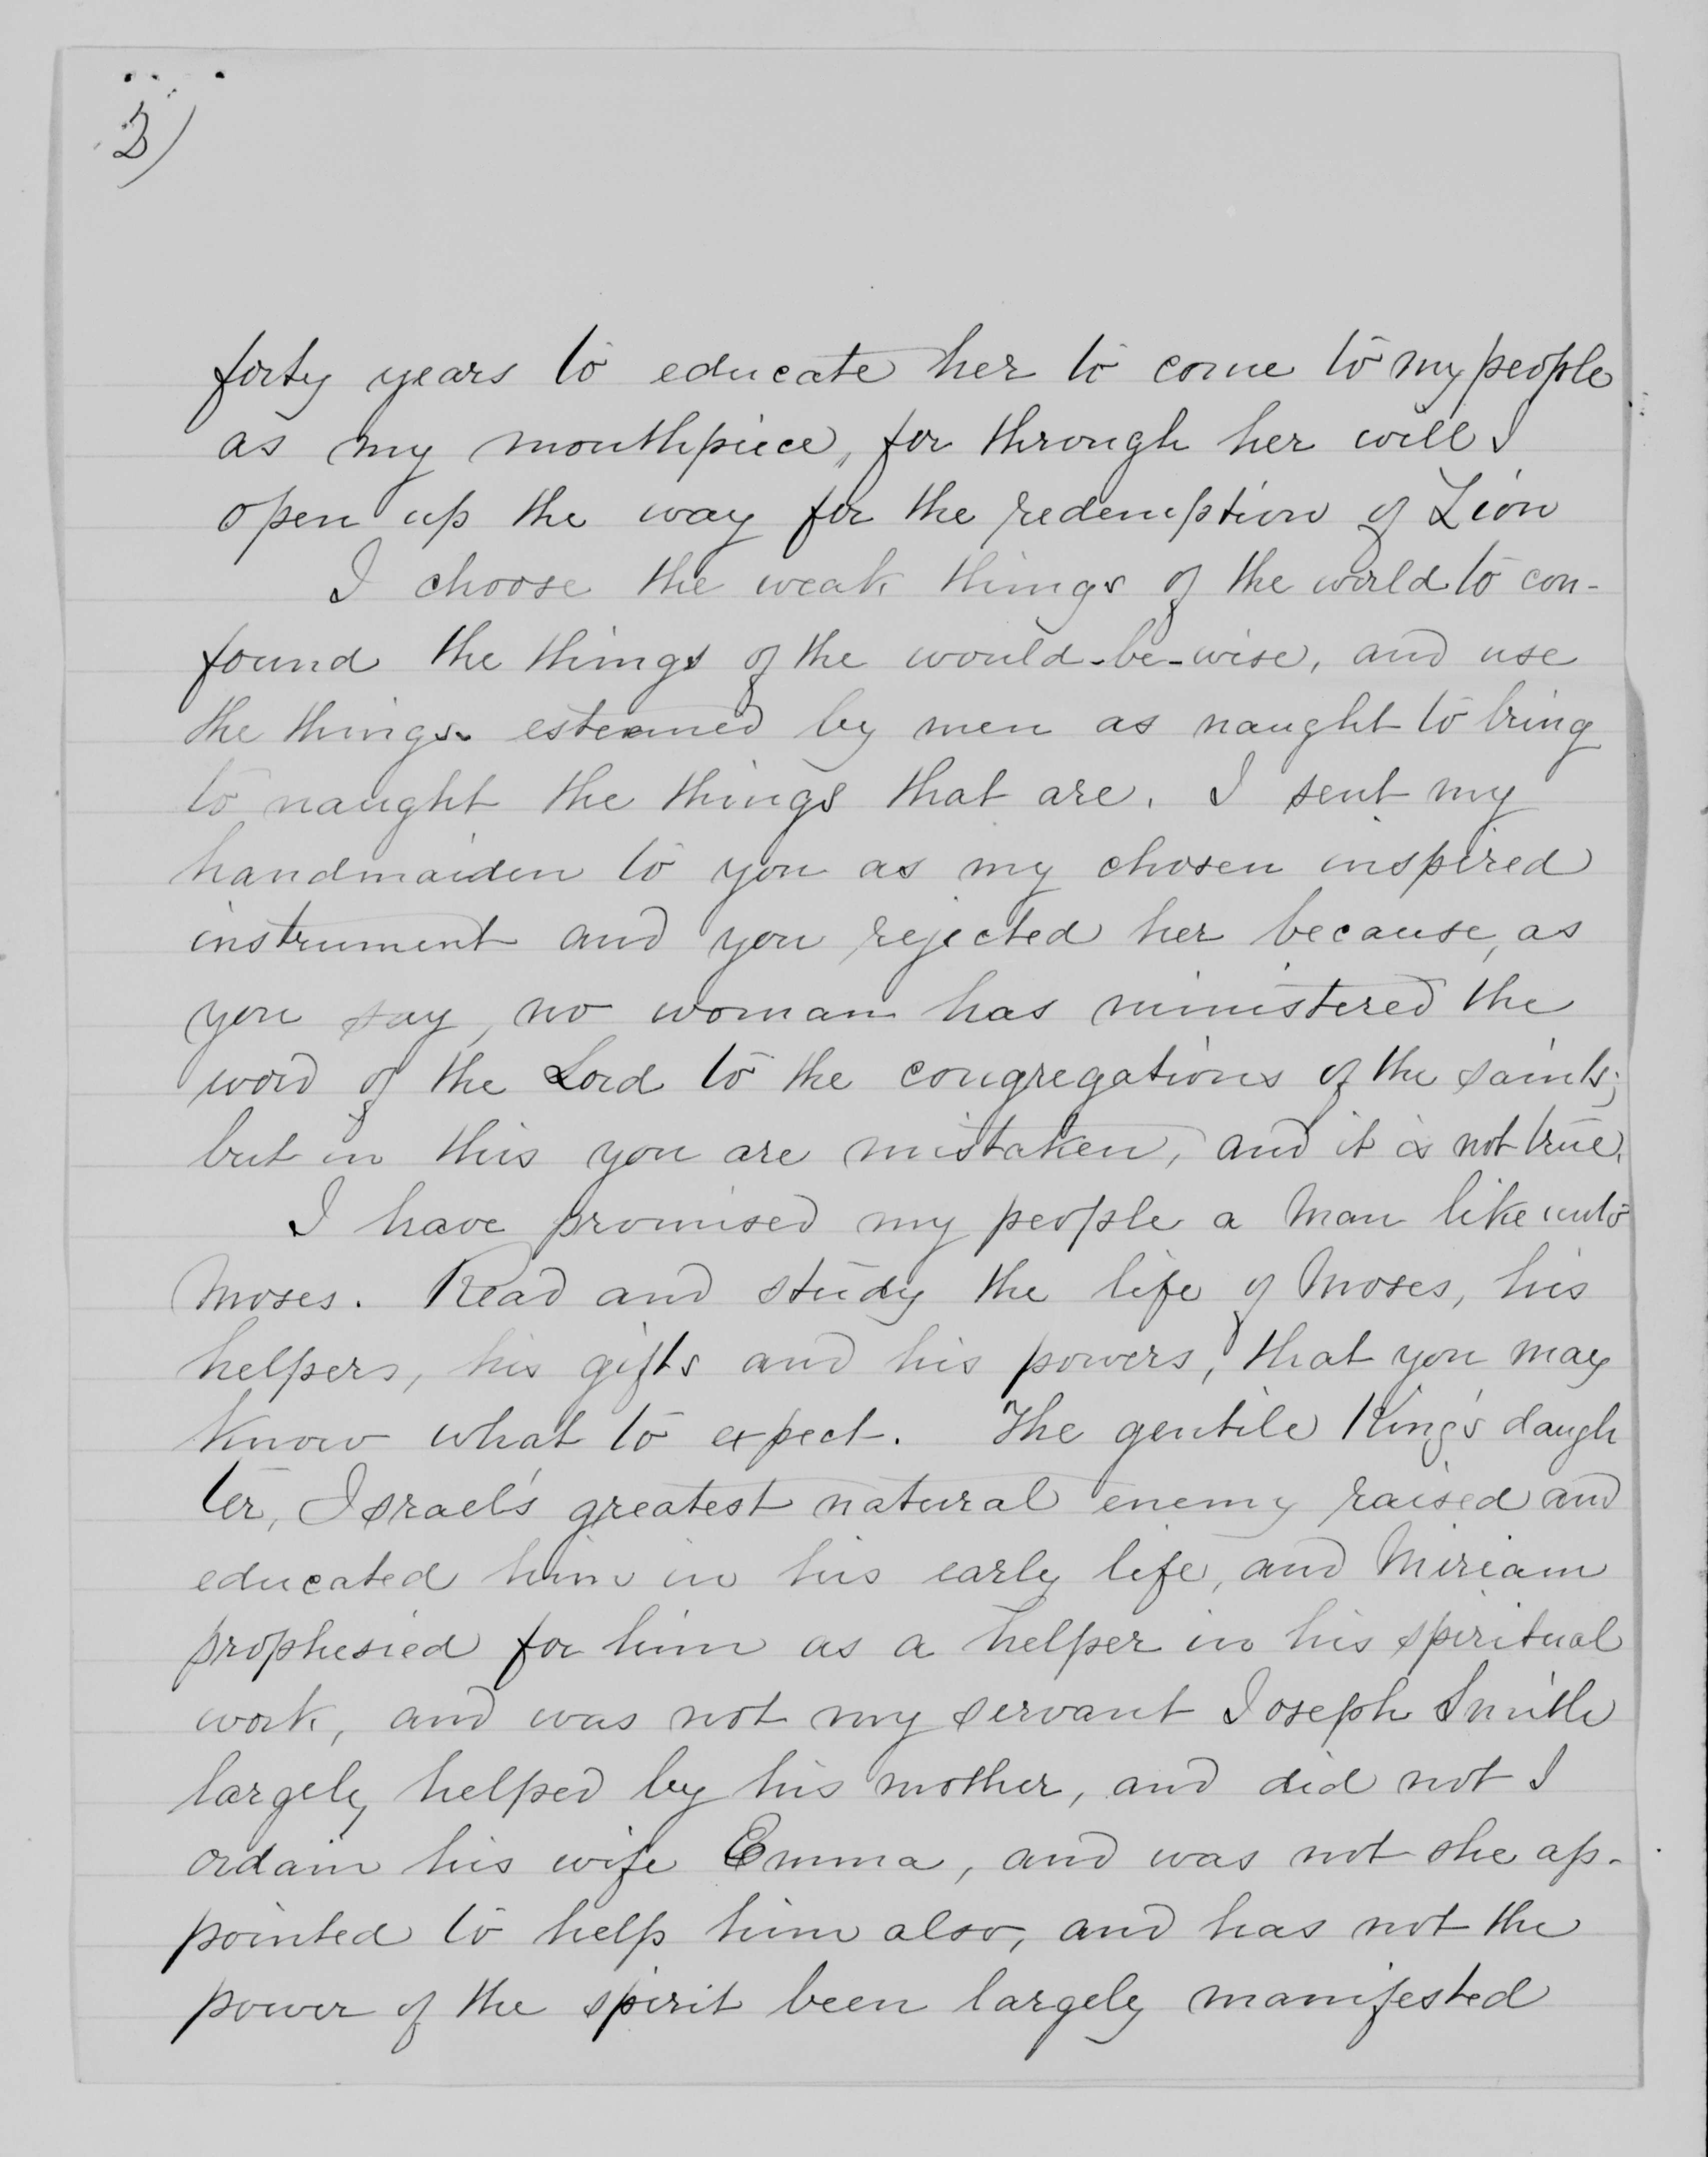 3)
forty years to educate her to come to my people
as my mouthpiece, for through her will I
open up the way for the redemption of Zion
I choose the weak things of the world to con-
found the things of the would-be-wise, and use
the things esteemed by men as naught to bring
to naught the things that are. I sent my
handmaiden to you as my chosen inspired
instrument and you rejected her because, as
you say, no woman has ministered the
word of the Lord to the congregations of the saints;
but in this you are mistaken, and it is not true.
I have promised my people a man like unto
Moses. Read and study the life of Moses, his
helpers, his gifts and his powers, that you may
know what to expect. The gentile King's daugh
ter, Israel's greatest natural enemy raised and
educated him in his early life, and Miriam
prophesied for him as a helper in his spiritual
work, and was not my servant Joseph Smith
largely helped by his mother, and did not I
ordain his wife Emma, and was not she ap-
pointed to help him also, and has not the
power of the spirit been largely manifested